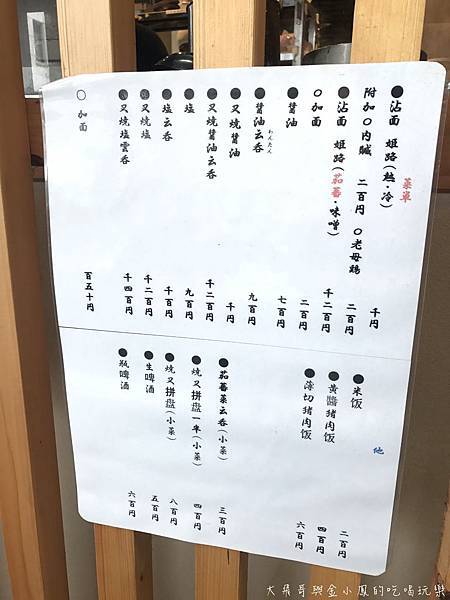 菜单
●沾面 姫路(熱·冷) 千円
附加○内臓 二百円 ○老母鶏 二百円
●沾面 姫路(茄蕃·味噌) 千二百円
○加面 二百円
●醤油 七百円
●醤油云呑 九百円
わんたん
●叉焼醤油 千円
●叉焼醤油云呑 千二百円
●塩 九百円
●塩云呑 千百円
●叉焼塩 千二百円
●叉焼塩雲呑 千四百円
○加面 百五十円
他
●米饭 二百円
●黄醬猪肉饭 四百円
●薄切猪肉饭 六百円
●茄蕃菜云呑(小菜) 三百円
●焼叉拼盘一半(小菜) 四百円
●焼叉拼盘(小菜) 八百円
●生啤酒 五百円
●瓶啤酒 六百円
大飛哥與金小鳳的吃喝玩樂